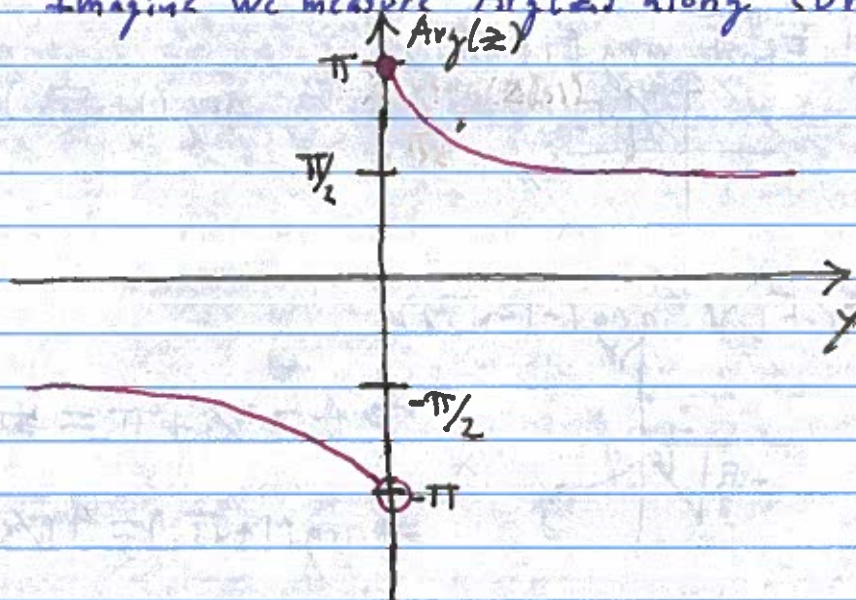 Imagine we measure Arg(z) along
Arg(z)
π
π/2
y
-π/2
-π